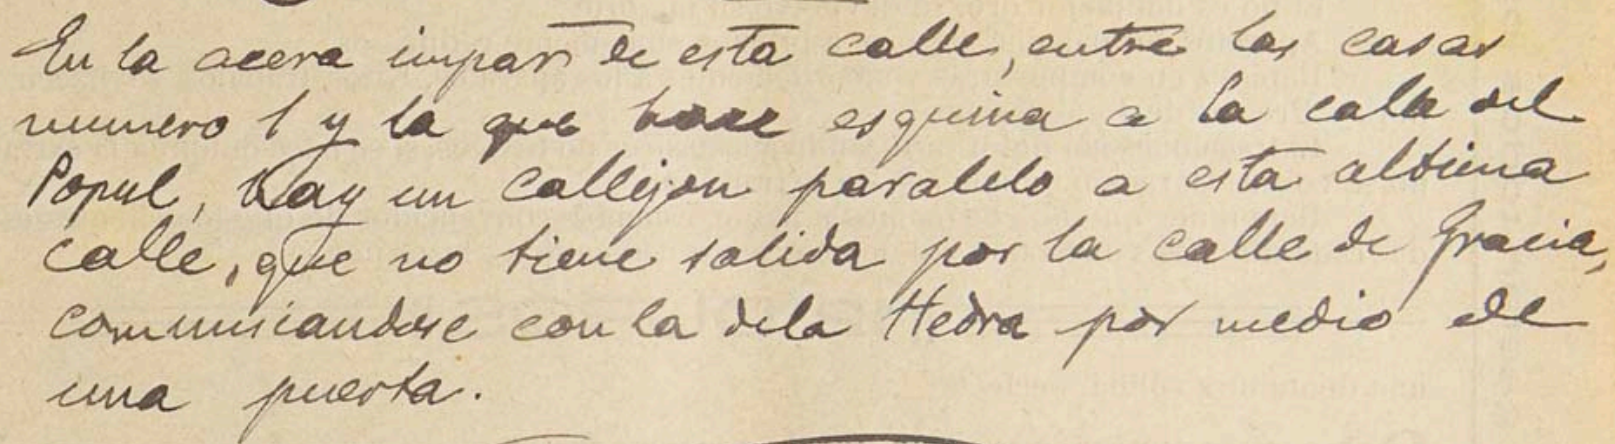 En la acera impar de esta calle, entre las casas
numero 1 y la que hace esquina a la calle del
Popul, hay un callejon paralelo a esta altima
calle, que no tiene salida por la calle de Gracia,
comunicandose con la dela Hedra por medio de
una puerta.